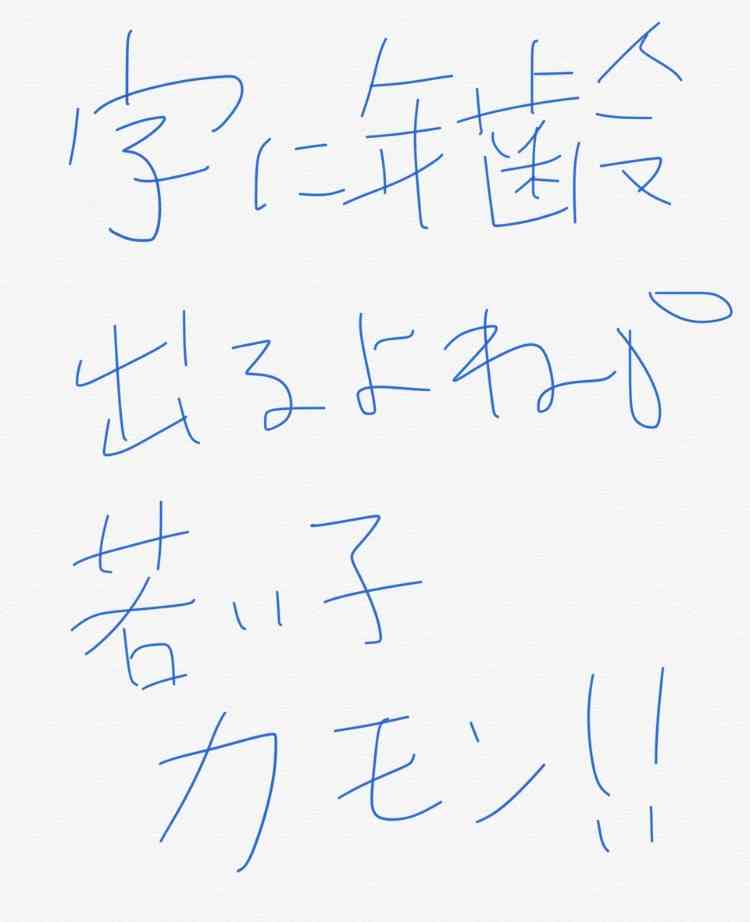 字に年齢
出るよね。
若い子
カモン!!